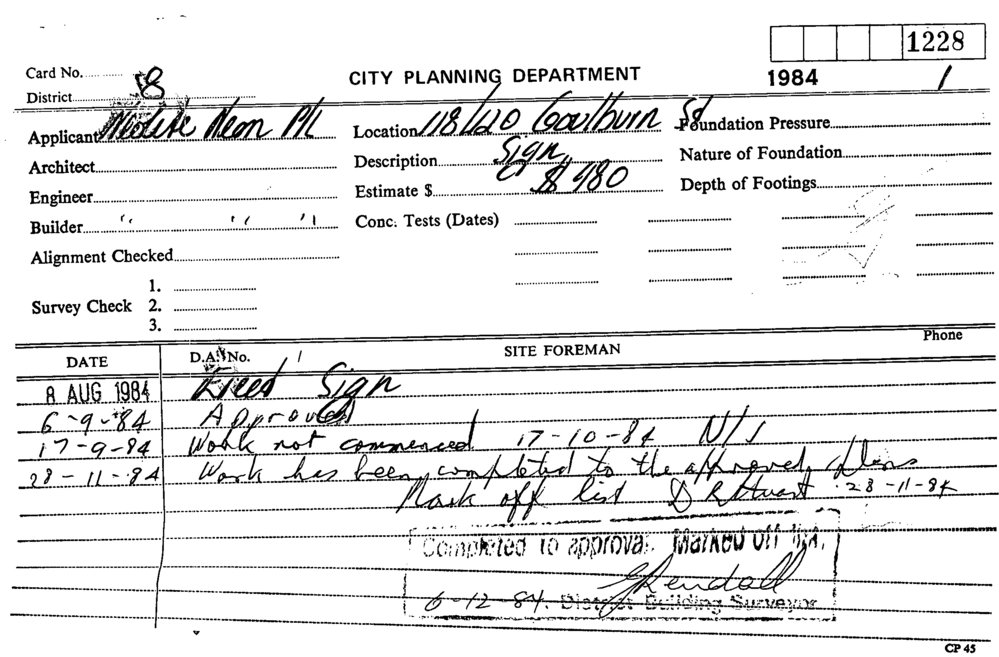 1228
Card No. 58
CITY PLANNING DEPARTMENT
1984
1
District
Applicant Neolite Neon P/L
Location 118/120 Goulburn St
Foundation Pressure
Architect
Description Sign
Nature of Foundation
Engineer
Estimate $ $ 980
Depth of Footings
Builder " " "
Conc. Tests (Dates)
Alignment Checked
1.
Survey Check 2.
3.
DATE
D.A. No.
SITE FOREMAN
Phone
8 AUG 1984 Erect Sign
6-9-84 Approved
17-9-84 Work not commenced 17-10-84 N/S
28-11-84 Work has been completed to the approved plans
Mark off list 28-11-84
Completed to approval. Marked off list.
6-12-84. District Building Surveyor
CP 45